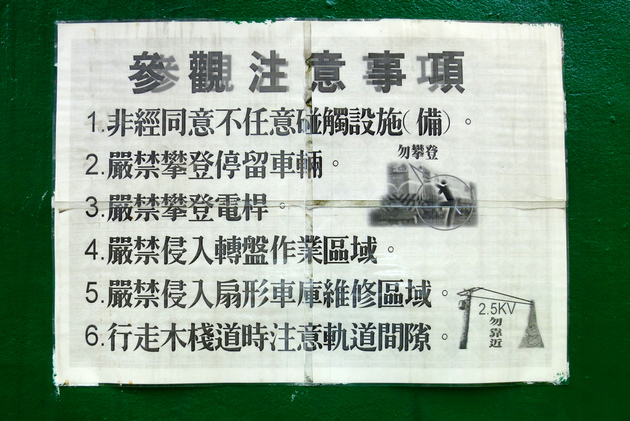 參觀注意事項
1.非經同意不任意碰觸設施(備)。
2.嚴禁攀登停留車輛。
勿攀登
3.嚴禁攀登電桿。
4.嚴禁侵入轉盤作業區域。
5.嚴禁侵入扇形車庫維修區域。
2.5KV
勿靠近
6.行走木棧道時注意軌道間隙。